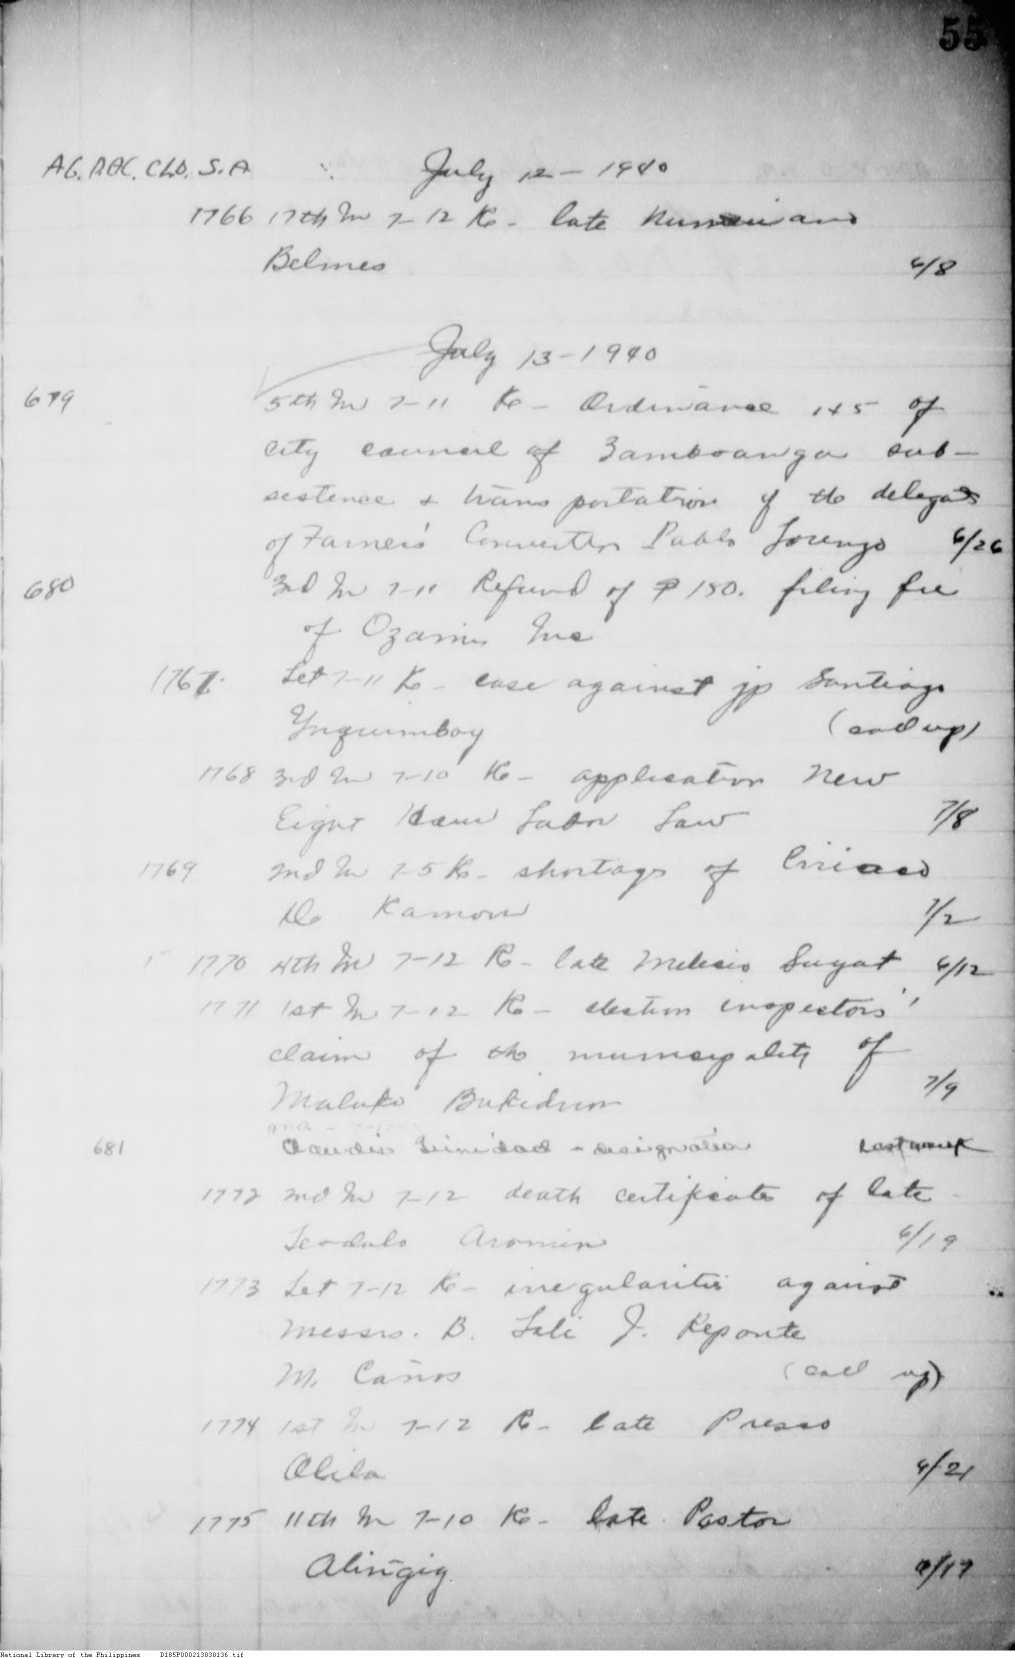 55
AG. DAC. CLD. S.A July 12 - 1940
1766 17th In 7-12 Re - late
Belmes 6/8
July 13 - 1940
679 5th In 7-11 Re - Ordinance 145 of
city council of Zamboanga sub-
sistence & transportation of the delegates
of Farmers' Convention Pablo Lorenzo 6/26
680 3rd In 7-11 Refund of ₱150. filing fee
of Ozamis Inc
1767. Let 7-11 Re - case against jp Santiago
Ynquimboy (call up)
1768 3rd In 7-10 Re - application New
Eight Hour Labor Law 7/8
1769 2nd In 7-5 Re - shortage of Ciriaco
De Ramon 7/2
1770 4th In 7-12 Re - late Melecio Suyat 6/12
1771 1st In 7-12 Re - election inspectors'
claim of the municipality of
Maluko Bukidnon 7/9
681 Claudio Trinidad - designation Last week
1772 2nd In 7-12 death certificate of late
Teodulo Aromin 6/19
1773 Let 7-12 Re - irregularities against
Messrs. B. Lali J. Reponte
M. Caños (call up)
1774 1st In 7-12 Re - late Presco
Olila 6/21
1775 11th In 7-10 Re - late Pastor
Alingig 6/17
National Library of the Philippines D185P000213830136.tif